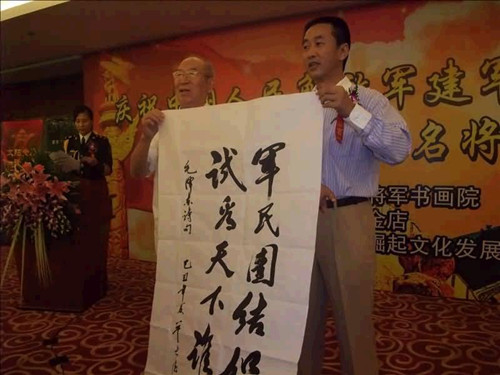 庆祝中国人民解放军建军
名将
将军书画院
金店
崛起文化发展
军民團结如
试看天下谁
毛泽东诗句
己丑年夏